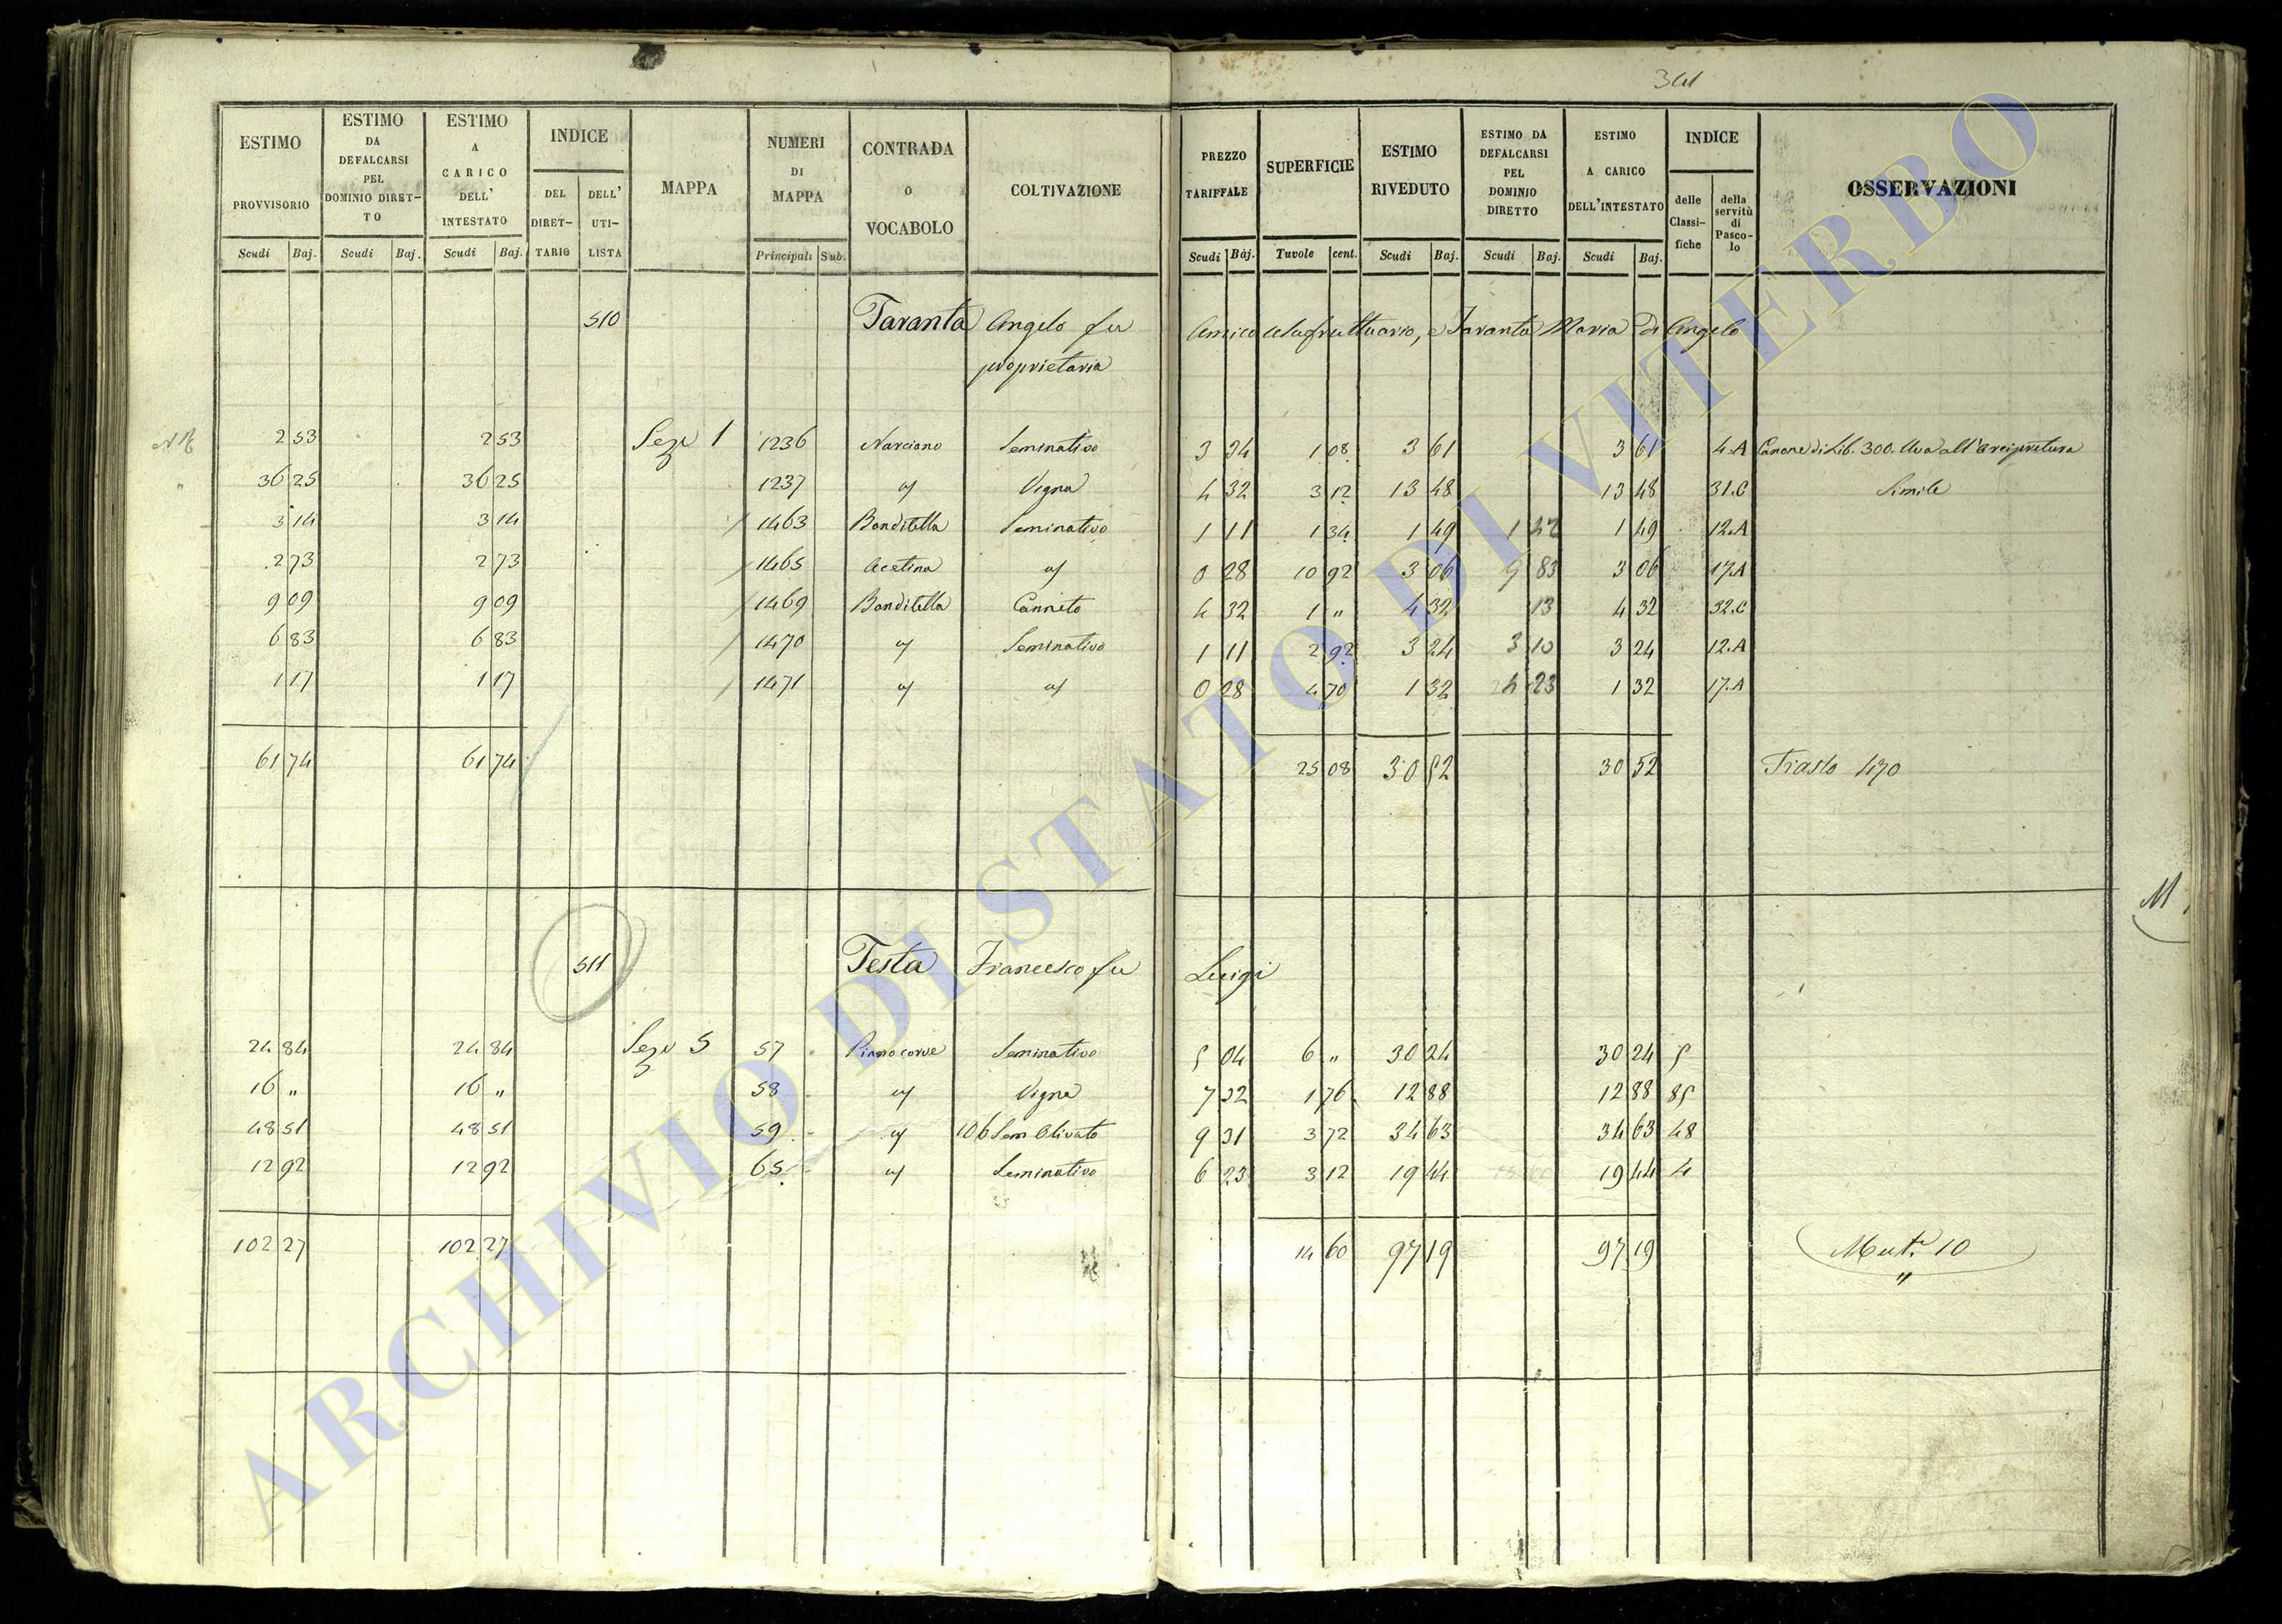 341
ESTIMO PROVVISORIO Scudi Baj.
ESTIMO DA DEFALCARSI PEL DOMINIO DIRET-TO Scudi Baj.
ESTIMO A CARICO DELL' INTESTATO Scudi Baj.
INDICE DEL DIRET-TARIO DELL' UTI-LISTA
MAPPA
NUMERI DI MAPPA Principali Sub.
CONTRADA O VOCABOLO
COLTIVAZIONE
PREZZO TARIFFALE Scudi Baj.
SUPERFICIE Tavole cent.
ESTIMO RIVEDUTO Scudi Baj.
ESTIMO DA DEFALCARSI PEL DOMINIO DIRETTO Scudi Baj.
ESTIMO A CARICO DELL'INTESTATO Scudi Baj.
INDICE delle Classi-fiche della servitù di Pasco-lo
OSSERVAZIONI
510 Taranta Angelo fu Amico Usufruttuario, e Taranta Maria di Angelo
proprietaria
2 53 2 53 Sez. 1 1236 Narciano Seminativo 3 34 1 08 3 61 3 61 4.A Canone di Lib. 300. Uva all'Arcipretura
36 25 36 25 1237 " Vigna 4 32 3 12 13 48 13 48 31.C Simile
3 14 3 14 1463 Banditella Seminativo 1 11 1 34 1 49 1 49 12.A
2 73 2 73 1465 Acetina " 0 28 10 92 3 06 9 83 3 06 17.A
9 09 9 09 1469 Banditella Canneto 4 32 1 " 4 32 13 4 32 32.C
6 83 6 83 1470 " Seminativo 1 11 2 92 3 24 3 10 3 24 12.A
1 17 1 17 1471 " " 0 28 4 70 1 32 4 23 1 32 17.A
61 74 61 74 25 08 30 52 30 52 Trasto 470
M
511 Testa Francesco fu Luigi
24 84 24 84 Sez. 5 57 Seminativo 5 04 6 " 30 24 30 24 5
16 " 16 " 58 " Vigna 7 32 1 76 12 88 12 88 85
48 51 48 51 59 " 106 Sem Olivato 9 31 3 72 34 63 34 63 48
12 92 12 92 65 " Seminativo 6 23 3 12 19 44 19 44 4
102 27 102 27 14 60 97 19 97 19 Mut. 10
ARCHIVIO DI STATO DI VITERBO